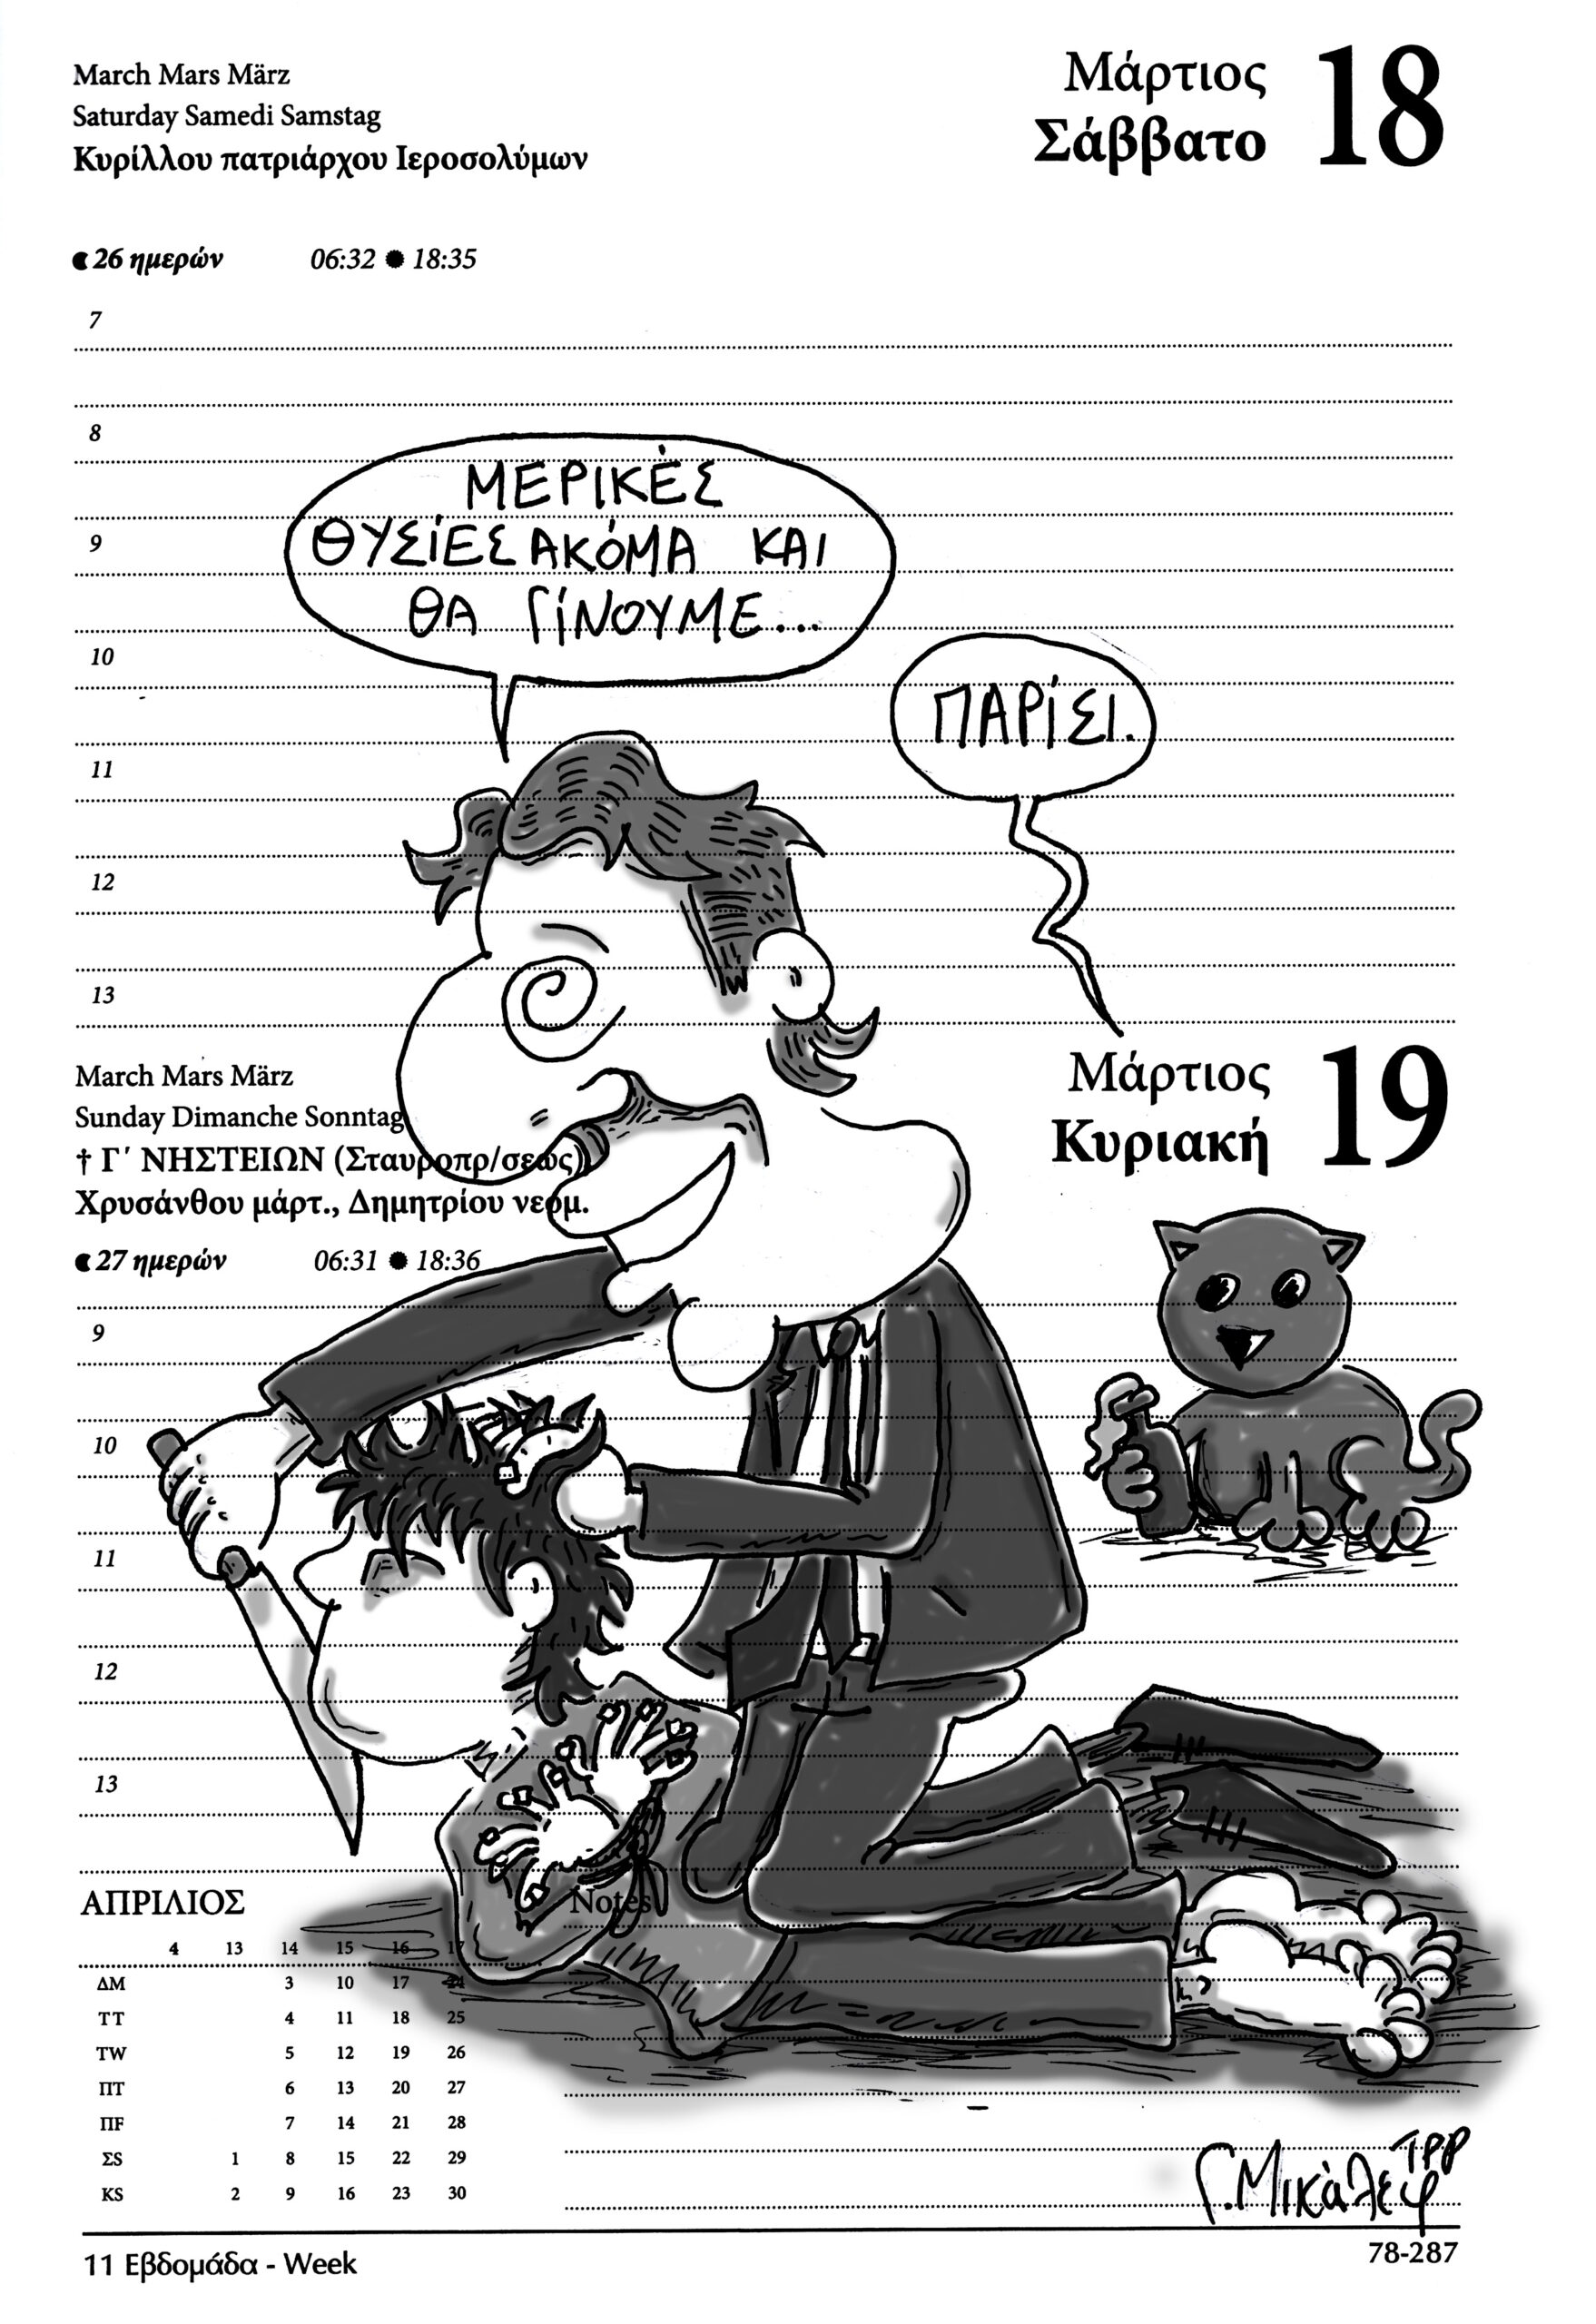 March Mars März
Saturday Samedi Samstag
Κυρίλλου πατριάρχου Ιεροσολύμων
Μάρτιος
Σάββατο
18
26 ημερών 06:32 18:35
7
8
ΜΕΡΙΚΈΣ
9
ΘΥΣΊΕΣ ΑΚΌΜΑ ΚΑΙ
ΘΑ ΓΊΝΟΥΜΕ...
10
ΠΑΡΊΣΙ.
11
12
13
March Mars März
Sunday Dimanche Sonntag
† Γ΄ ΝΗΣΤΕΙΩΝ (Σταυροπρ/σεως)
Χρυσάνθου μάρτ., Δημητρίου νεομ.
Μάρτιος
Κυριακή
19
27 ημερών 06:31 18:36
9
10
11
12
13
ΑΠΡΙΛΙΟΣ
Notes
4 13 14 15 16 17
ΔΜ 3 10 17 24
ΤΤ 4 11 18 25
ΤW 5 12 19 26
ΠΤ 6 13 20 27
ΠF 7 14 21 28
ΣS 1 8 15 22 29
ΚS 2 9 16 23 30
Γ. Μικάλεφ
11 Εβδομάδα - Week
78-287